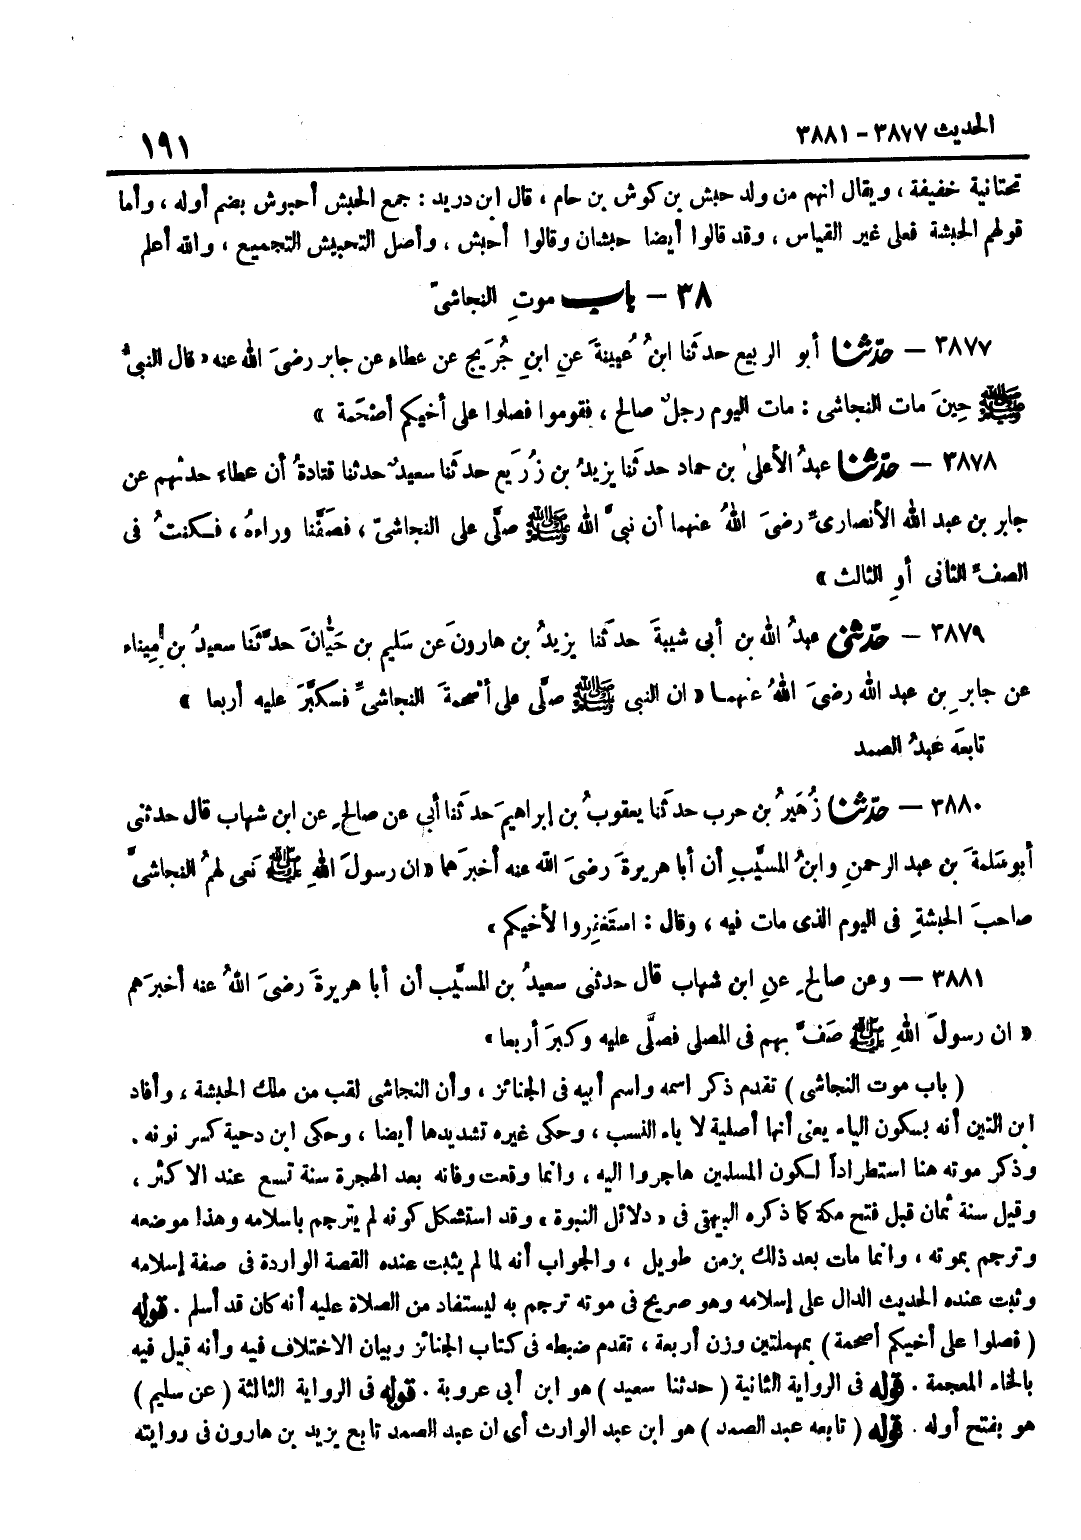 الحديث ٣٨٧٧ - ٣٨٨١
١٩١
تحتانية خفيفة ، ويقال انهم من ولد حبش بن كوش بن حام ، قال ابن دريد : جمع الحبش أحبوش بضم أوله ، وأما
قولهم الحبشة فعلى غير القياس ، وقد قالوا أيضا حبشان وقالوا أحبش ، وأصل التحبيش التجميع ، والله أعلم
٣٨ – باب موتِ النجاشىّ
٣٨٧٧ – حدّثنا أبو الربيع حدثنا ابنُ عُيينةَ عنِ ابنِ جُرَيجٍ عن عطاء عن جابر رضىَ اللهُ عنه « قال النبىُّ
ﷺ حِينَ مات النجاشى : مات اليوم رجلٌ صالح ، فقوموا فصلوا على أخيكم أصْحَمة »
٣٨٧٨ – حدّثنا عبدُ الأعلى بن حماد حدثنا يزيدُ بن زُرَيع حدثنا سعيدٌ حدثنا قتادةُ أن عطاء حدثهم عن
جابر بن عبد الله الأنصارىِّ رضىَ اللهُ عنهما أن نبىَّ الله ﷺ صلَّى على النجاشىّ ، فصَفَّنا وراءهُ ، فكنتُ فى
الصفِّ الثانى أوِ الثالث »
٣٨٧٩ – حدّثنى عبدُ الله بن أبى شيبةَ حدثنا يزيدُ بن هارونَ عن سَليم بن حَيّانَ حدَّثَنا سعيدُ بن مِيناء
عن جابرِ بن عبد الله رضىَ اللهُ عنهما « ان النبى ﷺ صلَّى على أصْحمةَ النجاشىِّ فكبَّرَ عليه أربعا »
تابعَه عبدُ الصمد
٣٨٨٠ – حدّثنا زُهَيرُ بن حرب حدثنا يعقوبُ بن إبراهيمَ حدثَنا أبي عن صالحٍ عن ابن شهاب قال حدثنى
أبو سَلمةَ بن عبد الرحمنِ وابنُ المسيَّبِ أن أبا هريرةَ رضىَ الله عنه أخبرَهما « ان رسولَ اللهِ ﷺ نَعى لهمُ النجاشىَّ
صاحبَ الحبشةِ فى اليوم الذى مات فيه ، وقال : استَغفِروا لأخيكم »
٣٨٨١ – وعن صالحٍ عنِ ابن شهاب قال حدثنى سعيدُ بن المسيَّب أن أبا هريرةَ رضىَ اللهُ عنه أخبرَهم
« ان رسولَ اللهِ ﷺ صَفَّ بهم فى المصلى فصلَّى عليه وكبرَ أربعا »
( باب موت النجاشى ) تقدم ذكر اسمه واسم أبيه فى الجنائز ، وأن النجاشى لقب من ملك الحبشة ، وأفاد
ابن التين أنه بسكون الياء يعنى أنها أصلية لا ياء النسب ، وحكى غيره تشديدها أيضا ، وحكى ابن دحية كسر نونه .
وذكر موته هنا استطراداً لكون المسلمين هاجروا اليه ، وانما وقعت وفاته بعد الهجرة سنة تسع عند الاكثر ،
وقيل سنة ثمان قبل فتح مكة كما ذكره البيهقى فى « دلائل النبوة » وقد استشكل كونه لم يترجم باسلامه وهذا موضعه
وترجم بموته ، وانما مات بعد ذلك بزمن طويل ، والجواب أنه لما لم يثبت عنده القصة الواردة فى صفة إسلامه
وثبت عنده الحديث الدال على إسلامه وهو صريح فى موته ترجم به ليستفاد من الصلاة عليه أنه كان قد أسلم . قوله
( فصلوا على أخيكم أصحمة ) بمهملتين وزن أربعة ، تقدم ضبطه فى كتاب الجنائز وبيان الاختلاف فيه وأنه قيل فيه
بالخاء المعجمة . قوله فى الرواية الثانية ( حدثنا سعيد ) هو ابن أبي عروبة . قوله فى الرواية الثالثة ( عن سليم )
هو بفتح أوله . قوله ( تابعه عبد الصمد ) هو ابن عبد الوارث أى ان عبد الصمد تابع يزيد بن هارون فى روايته